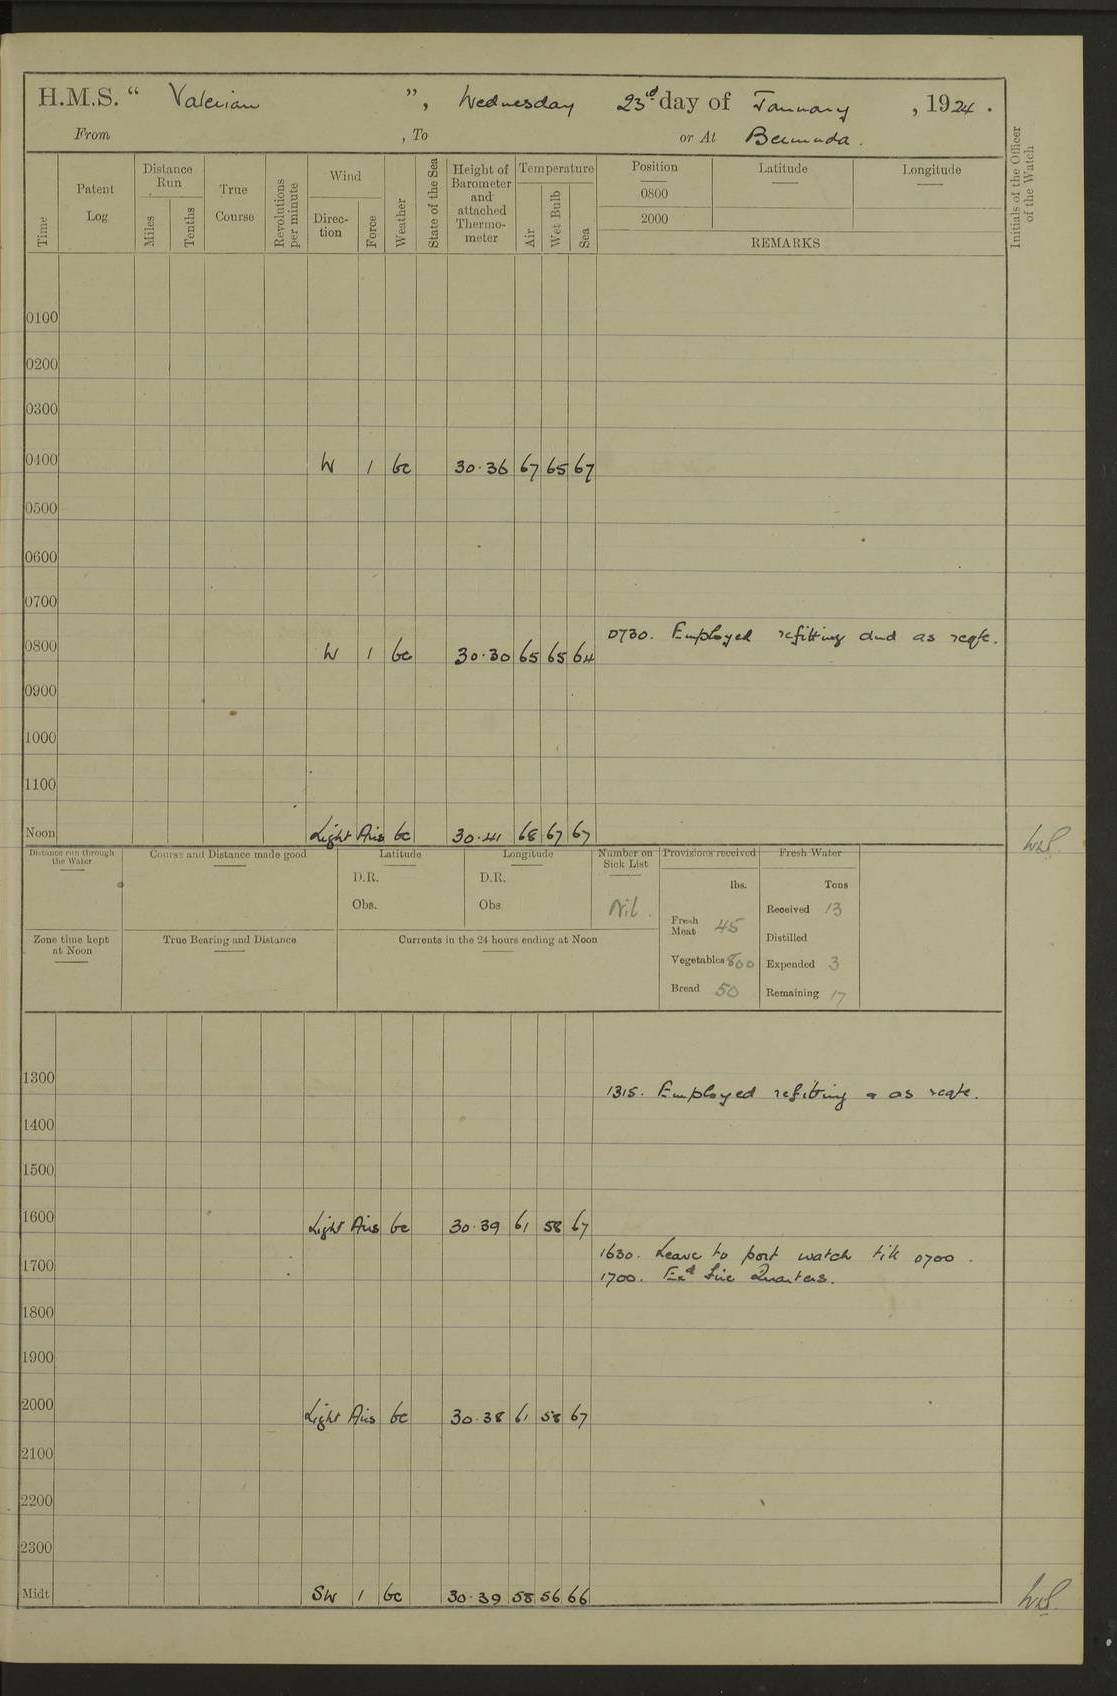 H.M.S. “ Valerian ”, Wednesday 23rd day of January , 1924 .
From , To or At Bermuda .
Time
Patent Log
Distance Run
Miles
Tenths
True Course
Revolutions per minute
Wind
Direc- tion
Force
Weather
State of the Sea
Height of Barometer and attached Thermo- meter
Temperature
Air
Wet Bulb
Sea
Position
0800
2000
Latitude
Longitude
REMARKS
Initials of the Officer of the Watch
0100
0200
0300
0400 W 1 bc 30.36 67 65 67
0500
0600
0700
0730. Employed refitting and as reqte.
0800 W 1 bc 30.30 65 65 64
0900
1000
1100
Noon Light Airs bc 30.41 68 67 67
Distance run through the Water
Course and Distance made good
Latitude
D.R.
Obs.
Longitude
D.R.
Obs
Number on Sick List
Nil.
Provisions received
lbs.
Fresh Meat 45
Vegetables 800
Bread 50
Fresh Water
Tons
Received 13
Distilled
Expended 3
Remaining 17
Zone time kept at Noon
True Bearing and Distance
Currents in the 24 hours ending at Noon
1300
1315. Employed refitting & as reqte.
1400
1500
1600 Light Airs bc 30.39 61 58 67
1630. Leave to port watch till 0700.
1700
1700. Exd fire Quarters.
1800
1900
2000 Light Airs bc 30.38 61 58 67
2100
2200
2300
Midt SW 1 bc 30.39 58 56 66